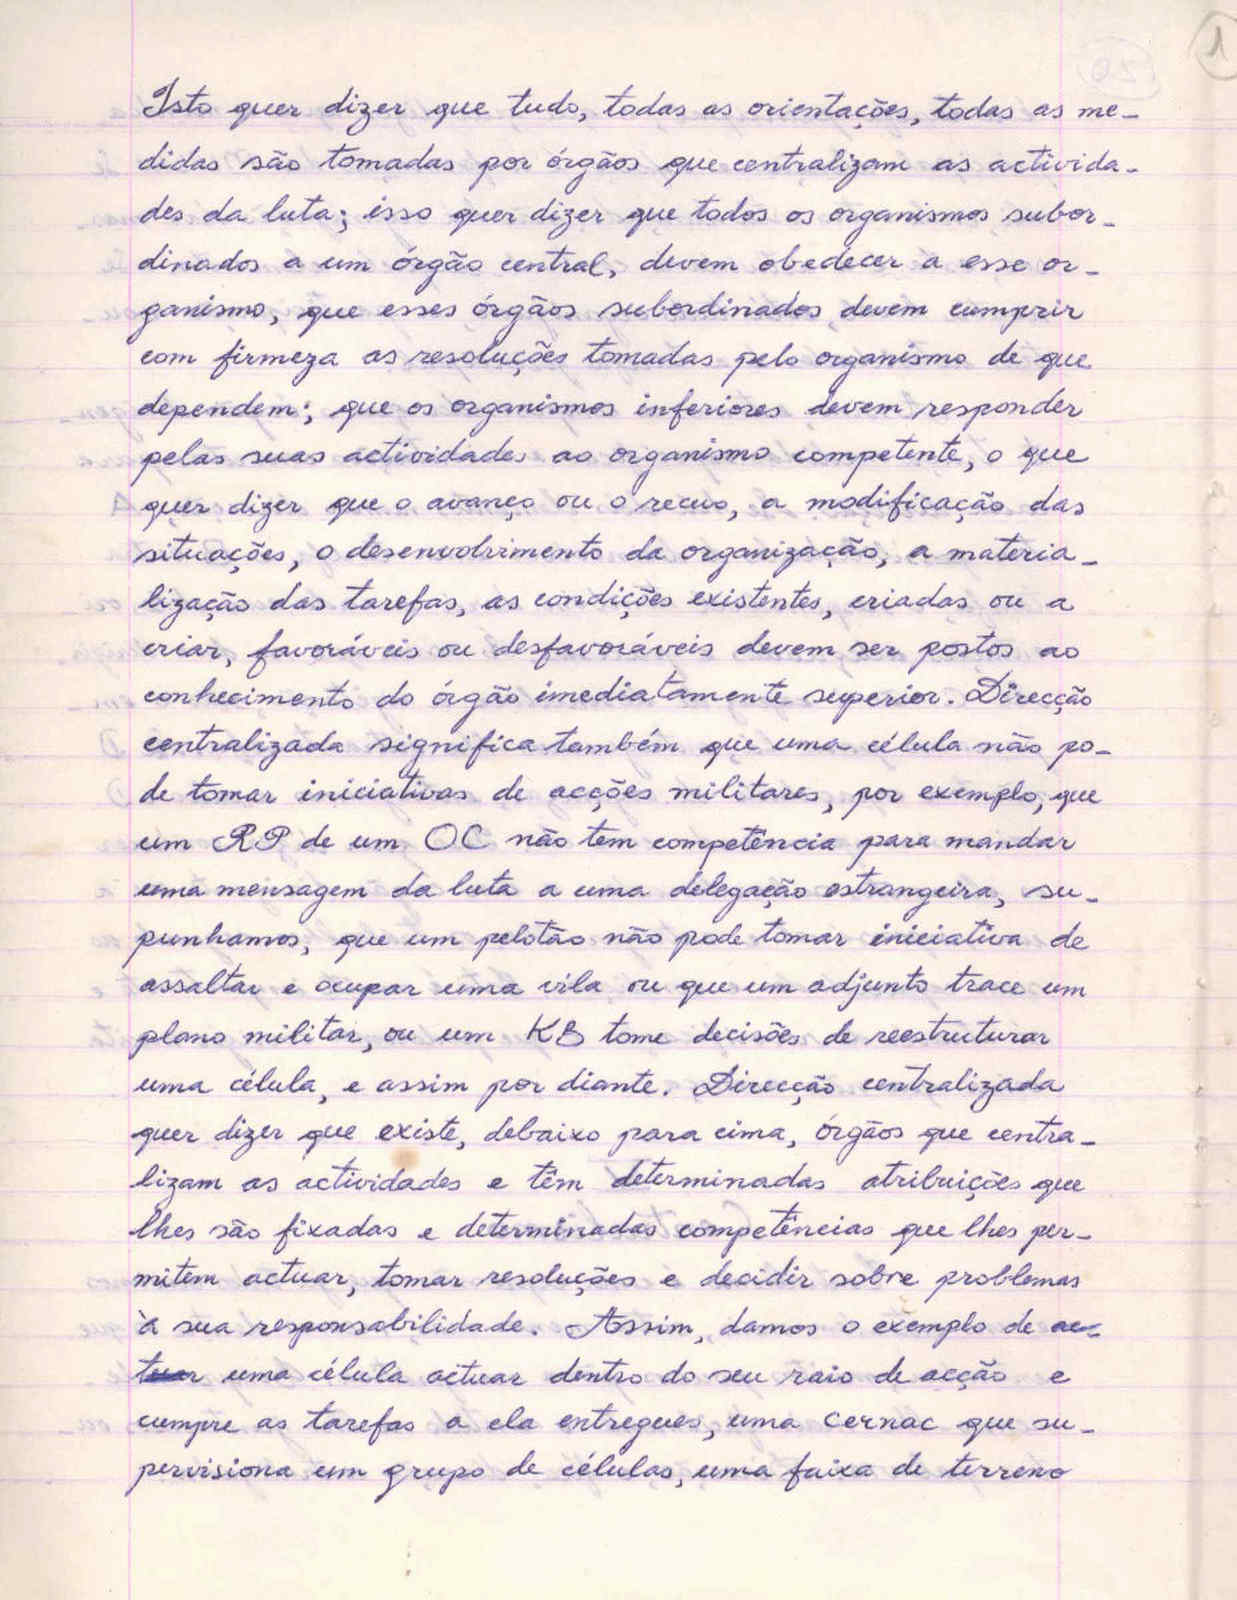 1
Isto quer dizer que tudo, todas as orientações, todas as me-
didas são tomadas por órgãos que centralizam as activida-
des da luta; isso quer dizer que todos os organismos subor-
dinados a um órgão central, devem obedecer a esse or-
ganismo, que esses órgãos subordinados devem cumprir
com firmeza as resoluções tomadas pelo organismo de que
dependem; que os organismos inferiores devem responder
pelas suas actividades ao organismo competente, o que
quer dizer que o avanço ou o recuo, a modificação das
situações, o desenvolvimento da organização, a materia-
lização das tarefas, as condições existentes, criadas ou a
criar, favoráveis ou desfavoráveis devem ser postos ao
conhecimento do órgão imediatamente superior. Direcção
centralizada significa também que uma célula não po-
de tomar iniciativas de acções militares, por exemplo, que
um RP de um OC não tem competência para mandar
uma mensagem da luta a uma delegação estrangeira, su-
punhamos, que um pelotão não pode tomar iniciativa de
assaltar e ocupar uma vila ou que um adjunto trace um
plano militar, ou um KB tome decisões de reestruturar
uma célula, e assim por diante. Direcção centralizada
quer dizer que existe, debaixo para cima, órgãos que centra-
lizam as actividades e têm determinadas atribuições que
lhes são fixadas e determinadas competências que lhes per-
mitem actuar, tomar resoluções e decidir sobre problemas
à sua responsabilidade. Assim, damos o exemplo de ac-
tuar uma célula actuar dentro do seu raio de acção e
cumpre as tarefas a ela entregues, uma cernac que su-
pervisiona um grupo de células, uma faixa de terreno